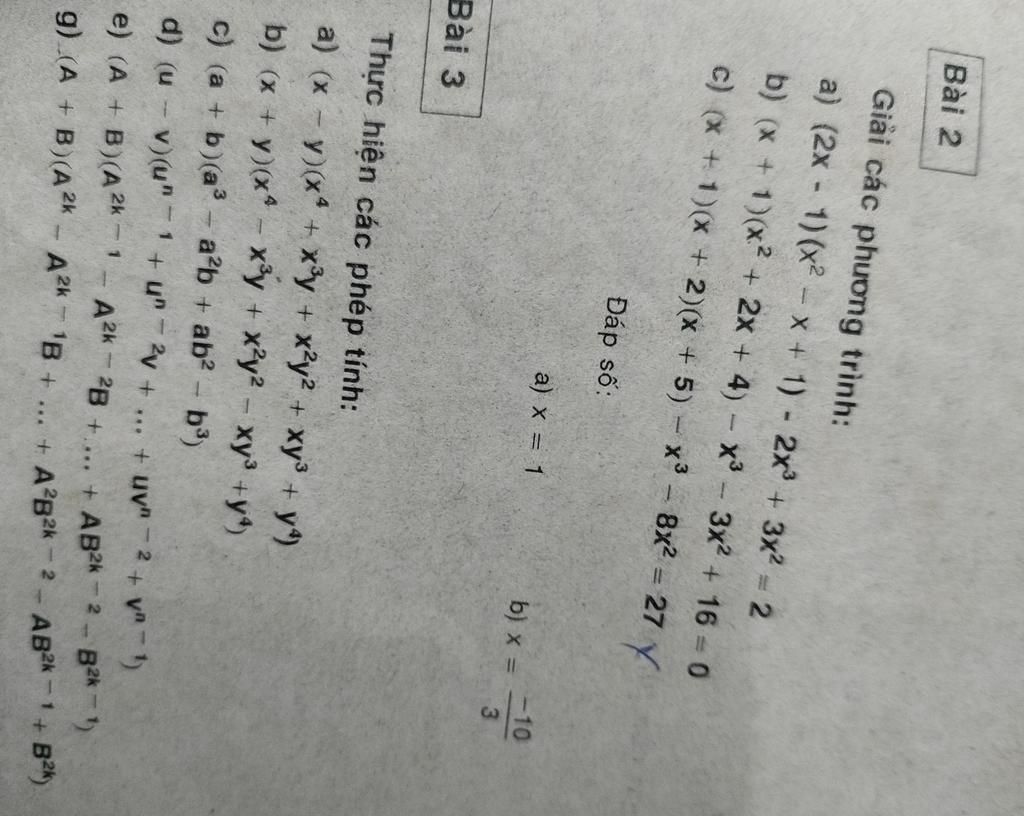 Bài 2
Giải các phương trình:
a) (2x - 1)(x² – x + 1) - 2x³ + 3x² = 2
b) (x + 1)(x² + 2x + 4) – x³ – 3x² + 16 = 0
c) (x + 1)(x + 2)(x + 5) – x³ – 8x² = 27
Đáp số:
a) x = 1
b) x = −10/3
Bài 3
Thực hiện các phép tính:
a) (x – y)(x⁴ + x³y + x²y² + xy³ + y⁴)
b) (x + y)(x⁴ – x³y + x²y² – xy³ + y⁴)
c) (a + b)(a³ – a²b + ab² – b³)
d) (u – v)(uⁿ⁻¹ + uⁿ⁻²v + ... + uvⁿ⁻² + vⁿ⁻¹)
e) (A + B)(A²ᵏ⁻¹ – A²ᵏ⁻²B + ... + AB²ᵏ⁻² – B²ᵏ⁻¹)
g) (A + B)(A²ᵏ – A²ᵏ⁻¹B + ... + A²B²ᵏ⁻² – AB²ᵏ⁻¹ + B²ᵏ)